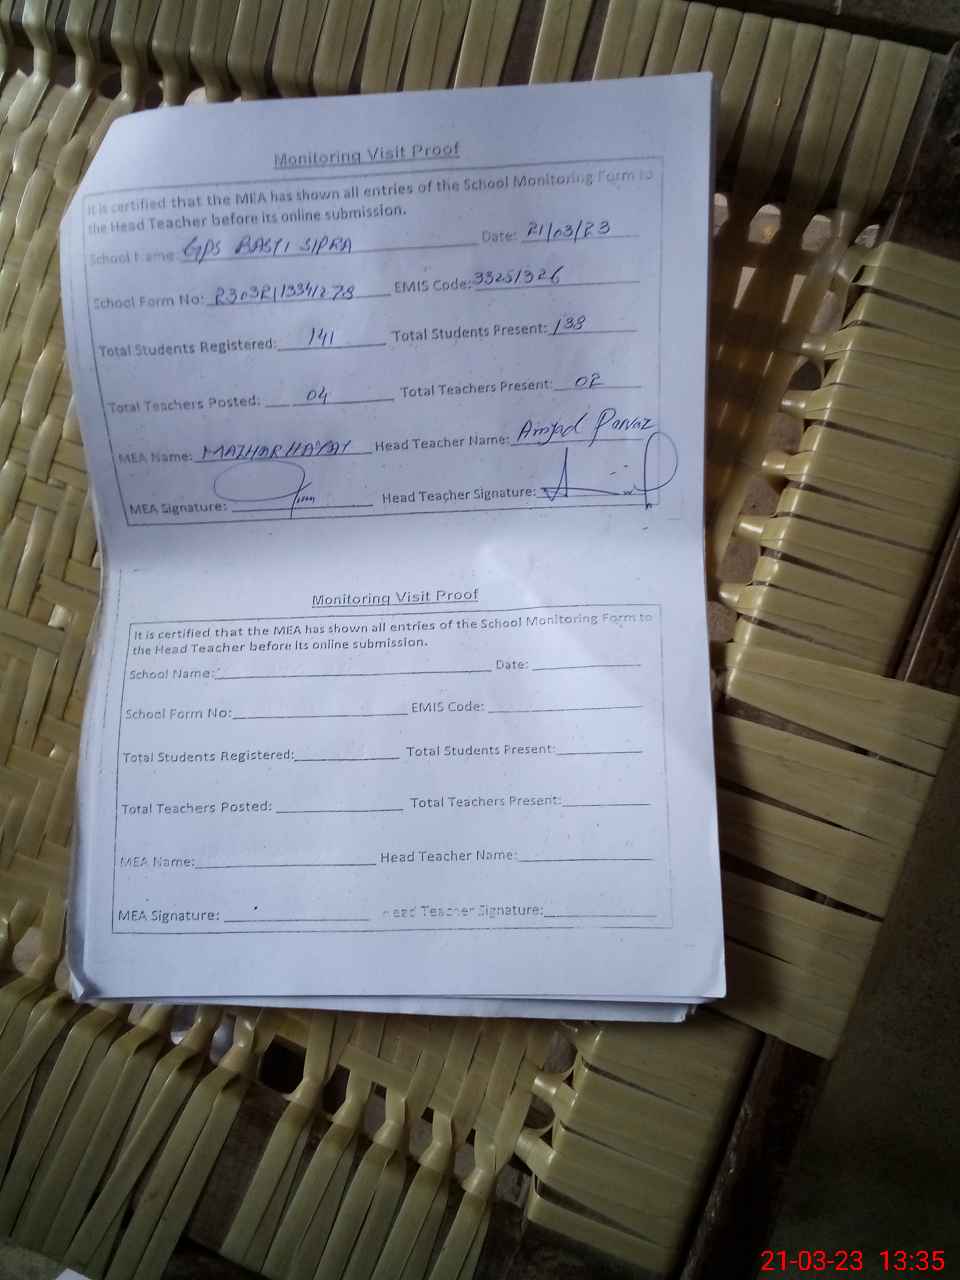 Monitoring Visit Proof
It is certified that the MEA has shown all entries of the School Monitoring Form to
the Head Teacher before its online submission.
School Name: GPS BASTI SIPRA Date: 21/03/23
School Form No: 230321133341278 EMIS Code: 33251326
Total Students Registered: 141 Total Students Present: 138
Total Teachers Posted: 04 Total Teachers Present: 02
MEA Name: MAZHAR HAYAT Head Teacher Name: Amjad Parvaz
MEA Signature: Head Teacher Signature:
Monitoring Visit Proof
It is certified that the MEA has shown all entries of the School Monitoring Form to
the Head Teacher before its online submission.
School Name: Date:
School Form No: EMIS Code:
Total Students Registered: Total Students Present:
Total Teachers Posted: Total Teachers Present:
MEA Name: Head Teacher Name:
MEA Signature: Head Teacher Signature:
21-03-23 13:35